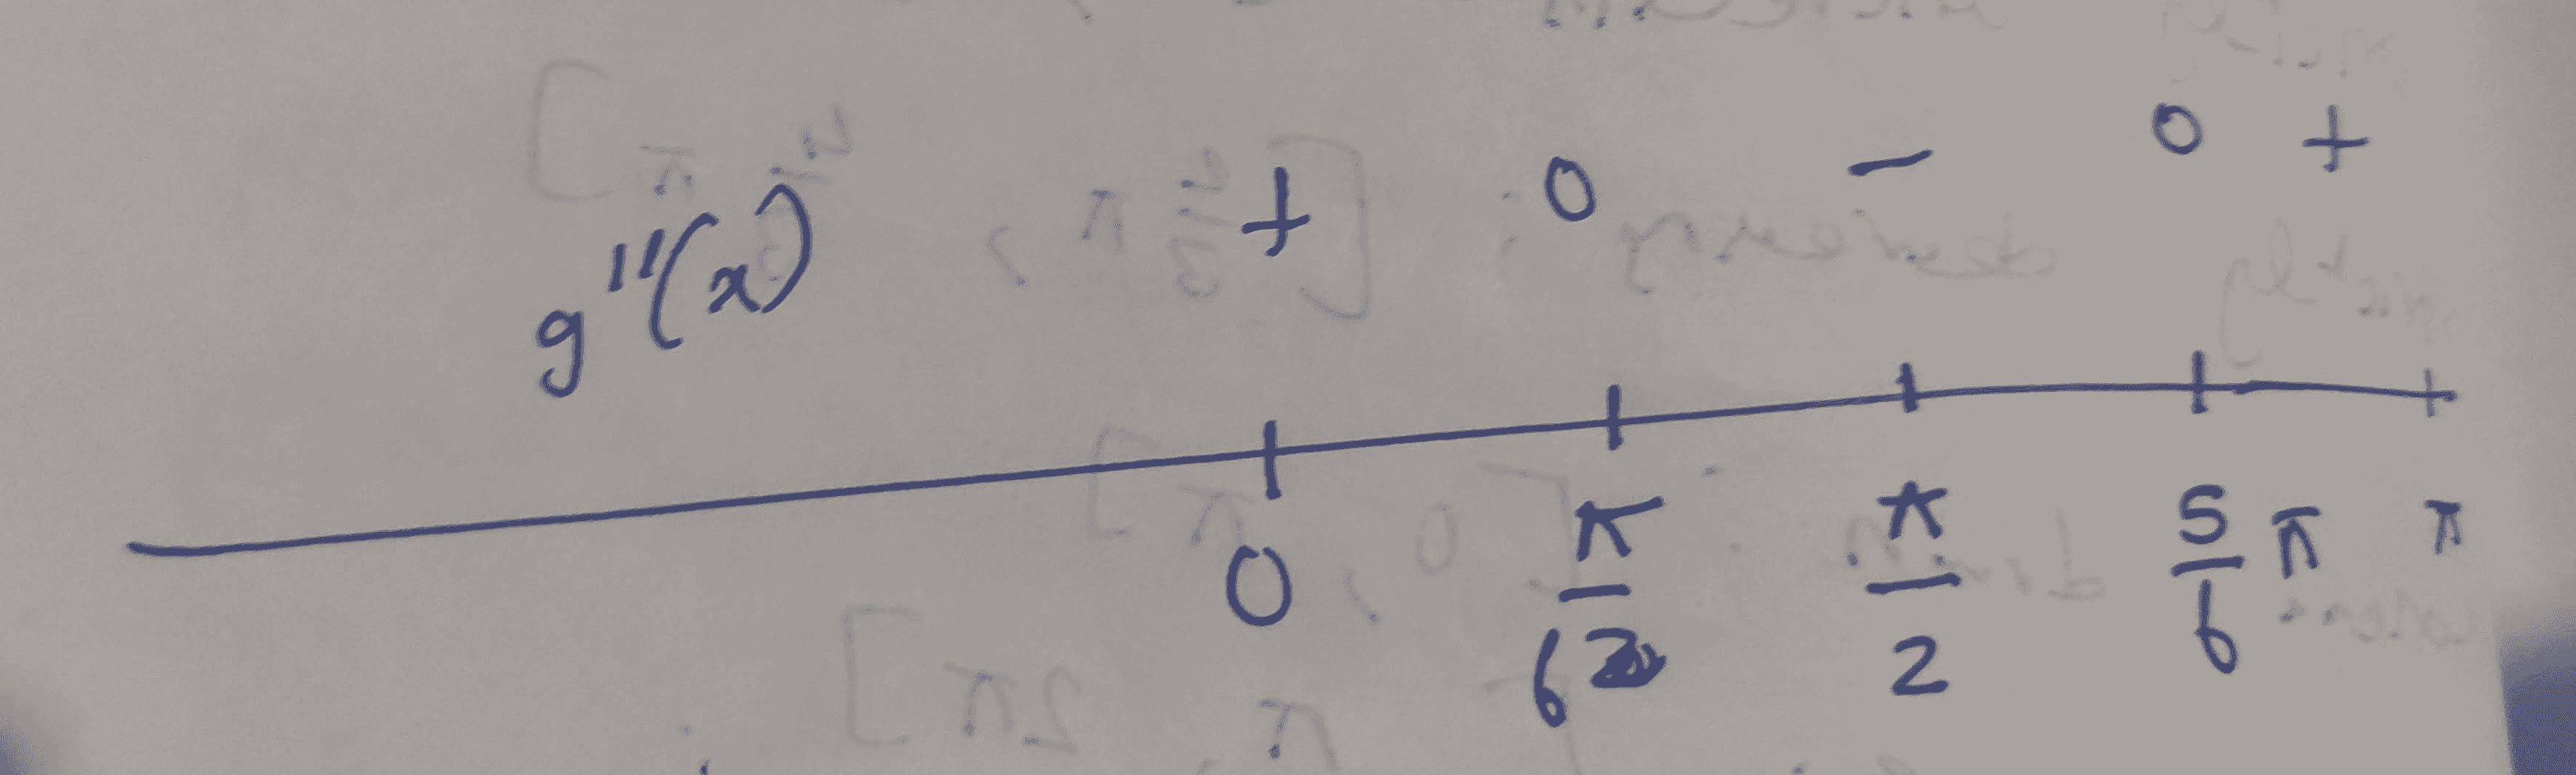 g''(x) + 0 − 0 +
0 π/6 π/2 5/6 π π